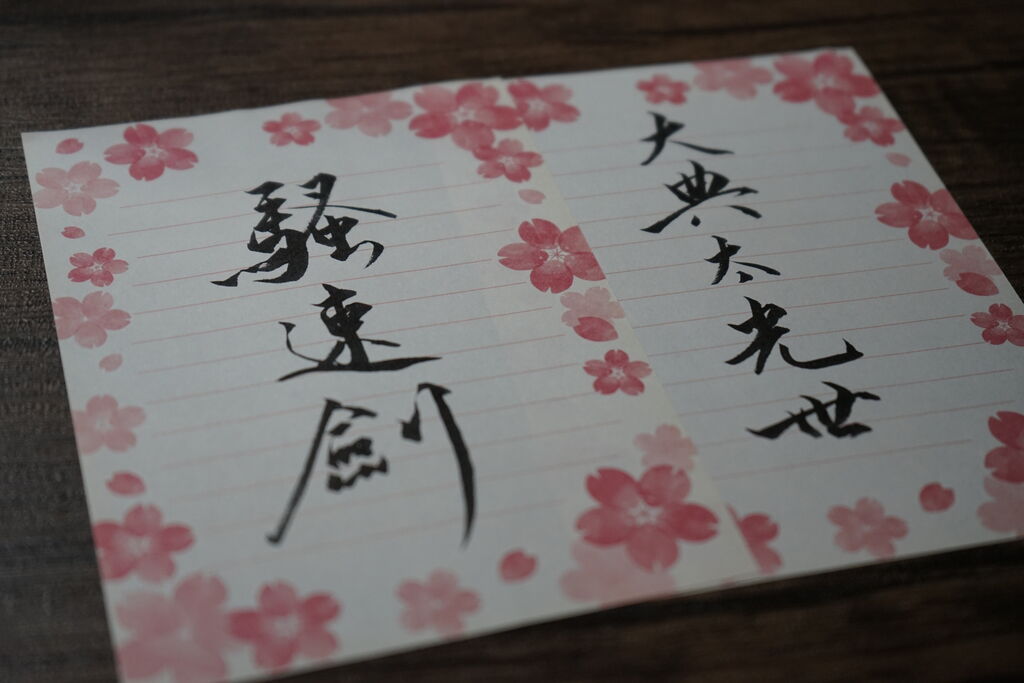 大典太光世
騒速剣